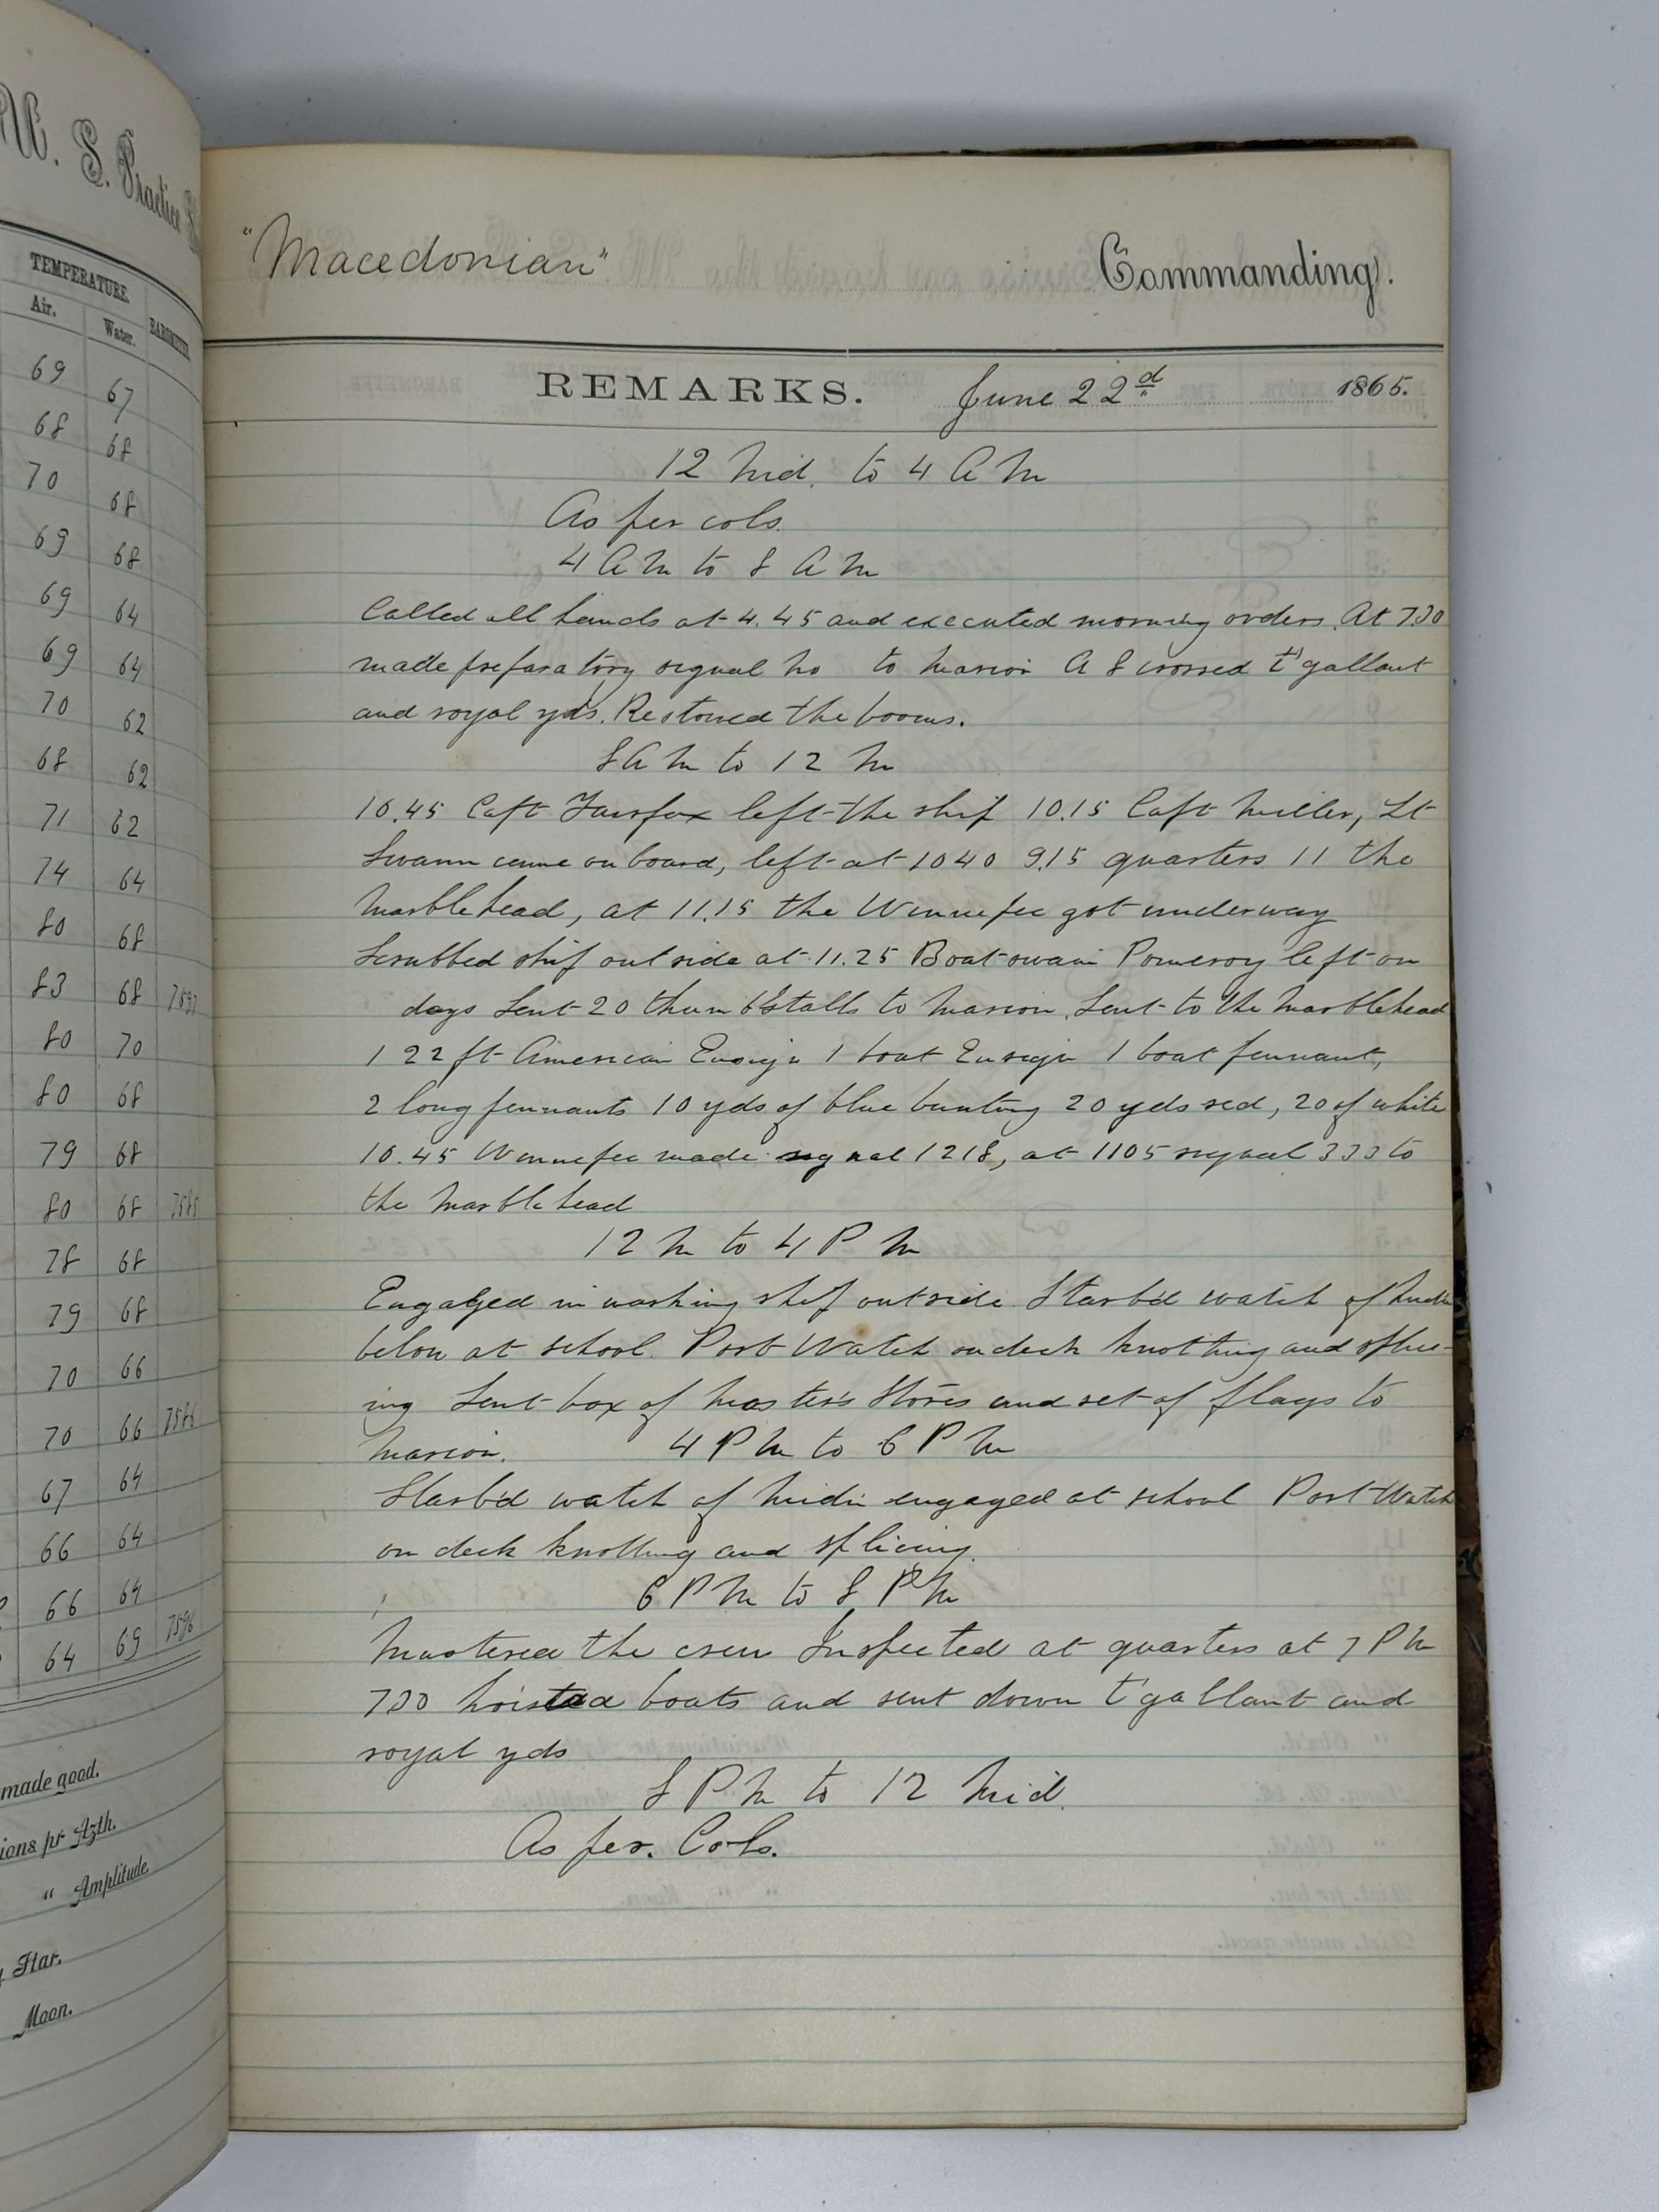 W. S. Practice S
TEMPERATURE.
BAROMETER
Air.
Water.
69 67
68 68
70 68
69 68
69 64
69 64
70 62
68 62
71 62
74 64
80 68
83 68
80 70
80 68
79 68
80 68
78 68
79 68
70 66
70 66
67 64
66 64
66 64
64 69
made good.
ions pr Azth.
" Amplitude
Star.
Moon.
"Macedonian" Commanding.
REMARKS. June 22d 1865.
12 Mid. to 4 A M
As per cols.
4 A M to 8 A M
Called all hands at 4.45 and executed morning orders. At 730
made preparatory signal No to Marion A 8 crossed t'gallant
and royal yds. Restowed the booms.
8 A M to 12 M
10.45 Capt Fairfax left the ship 10.15 Capt Miller, Lt
Swann came on board, left at 1040 9.15 quarters 11 the
Marblehead, at 11.15 the Winnepec got underway
Scrubbed ship outside at 11.25 Boatswain Pomeroy left on
days Sent 20 thumbstalls to Marion. Sent to the Marblehead
1 22 ft American Ensign 1 boat Ensign 1 boat pennant,
2 long pennants 10 yds of blue bunting 20 yds red, 20 of white
10.45 Winnepec made signal 1218, at 1105 signal 333 to
the Marblehead
12 M to 4 P M
Engaged in washing ship outside. Starb'd watch of Midn
below at school. Port Watch on deck knotting and splic-
ing Sent box of Master's Stores and set of flags to
Marion. 4 P M to 6 P M
Starb'd watch of Midn engaged at school Port Watch
on deck knotting and splicing.
6 P M to 8 P M
Mustered the crew Inspected at quarters at 7 P M
730 hoisted boats and sent down t'gallant and
royal yds
8 P M to 12 Mid.
As per. Cols.